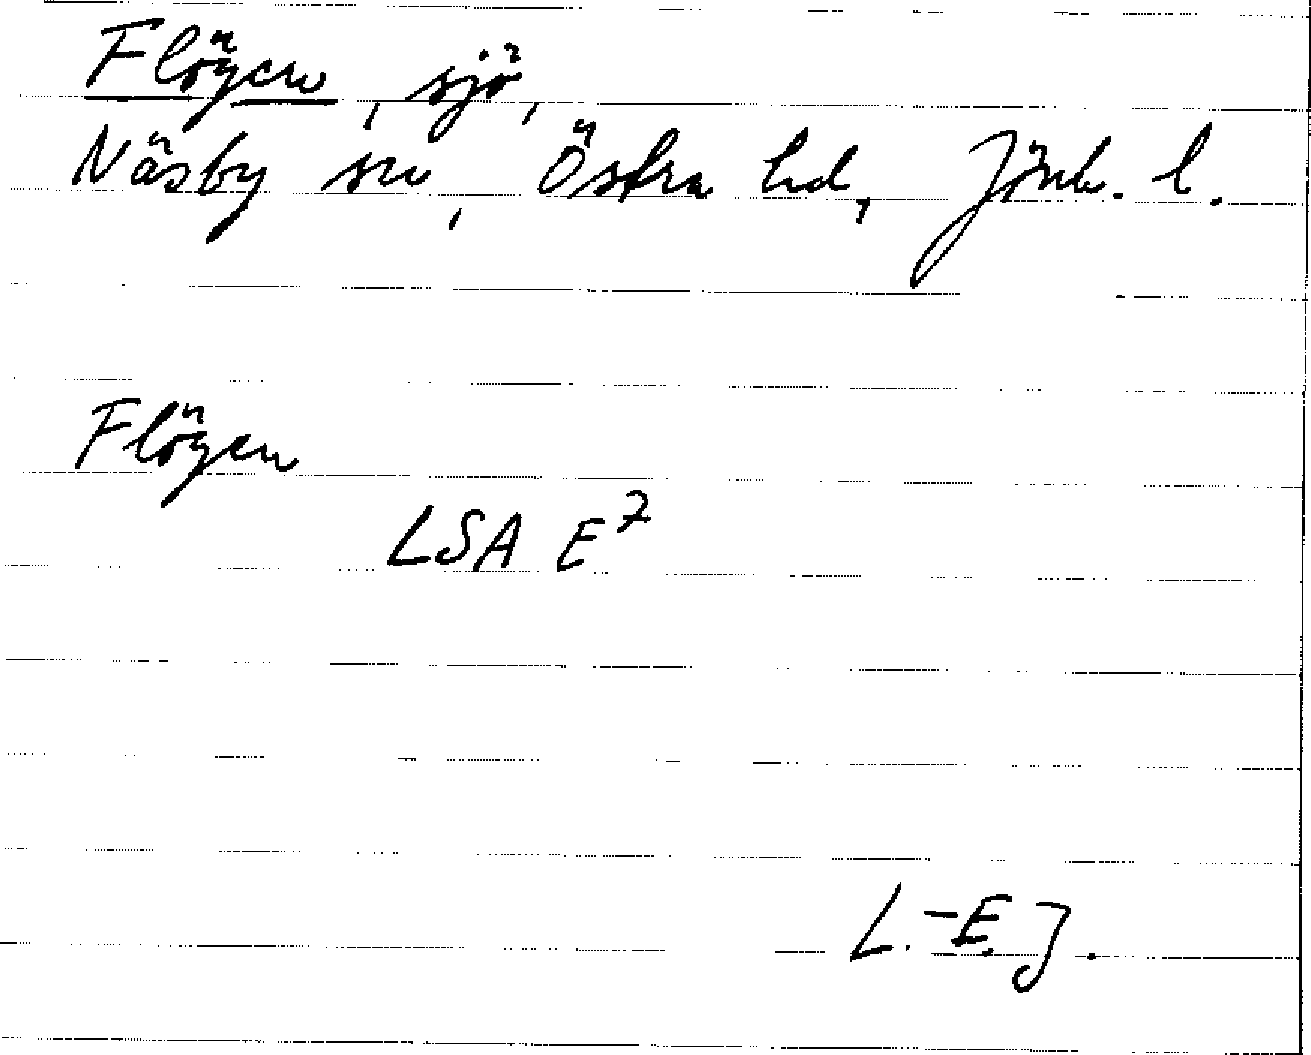 Flögen, sjö,
Näsby sn, Östra hd, Jönk. l.
Flögen
LSA E7
L.-E. J.